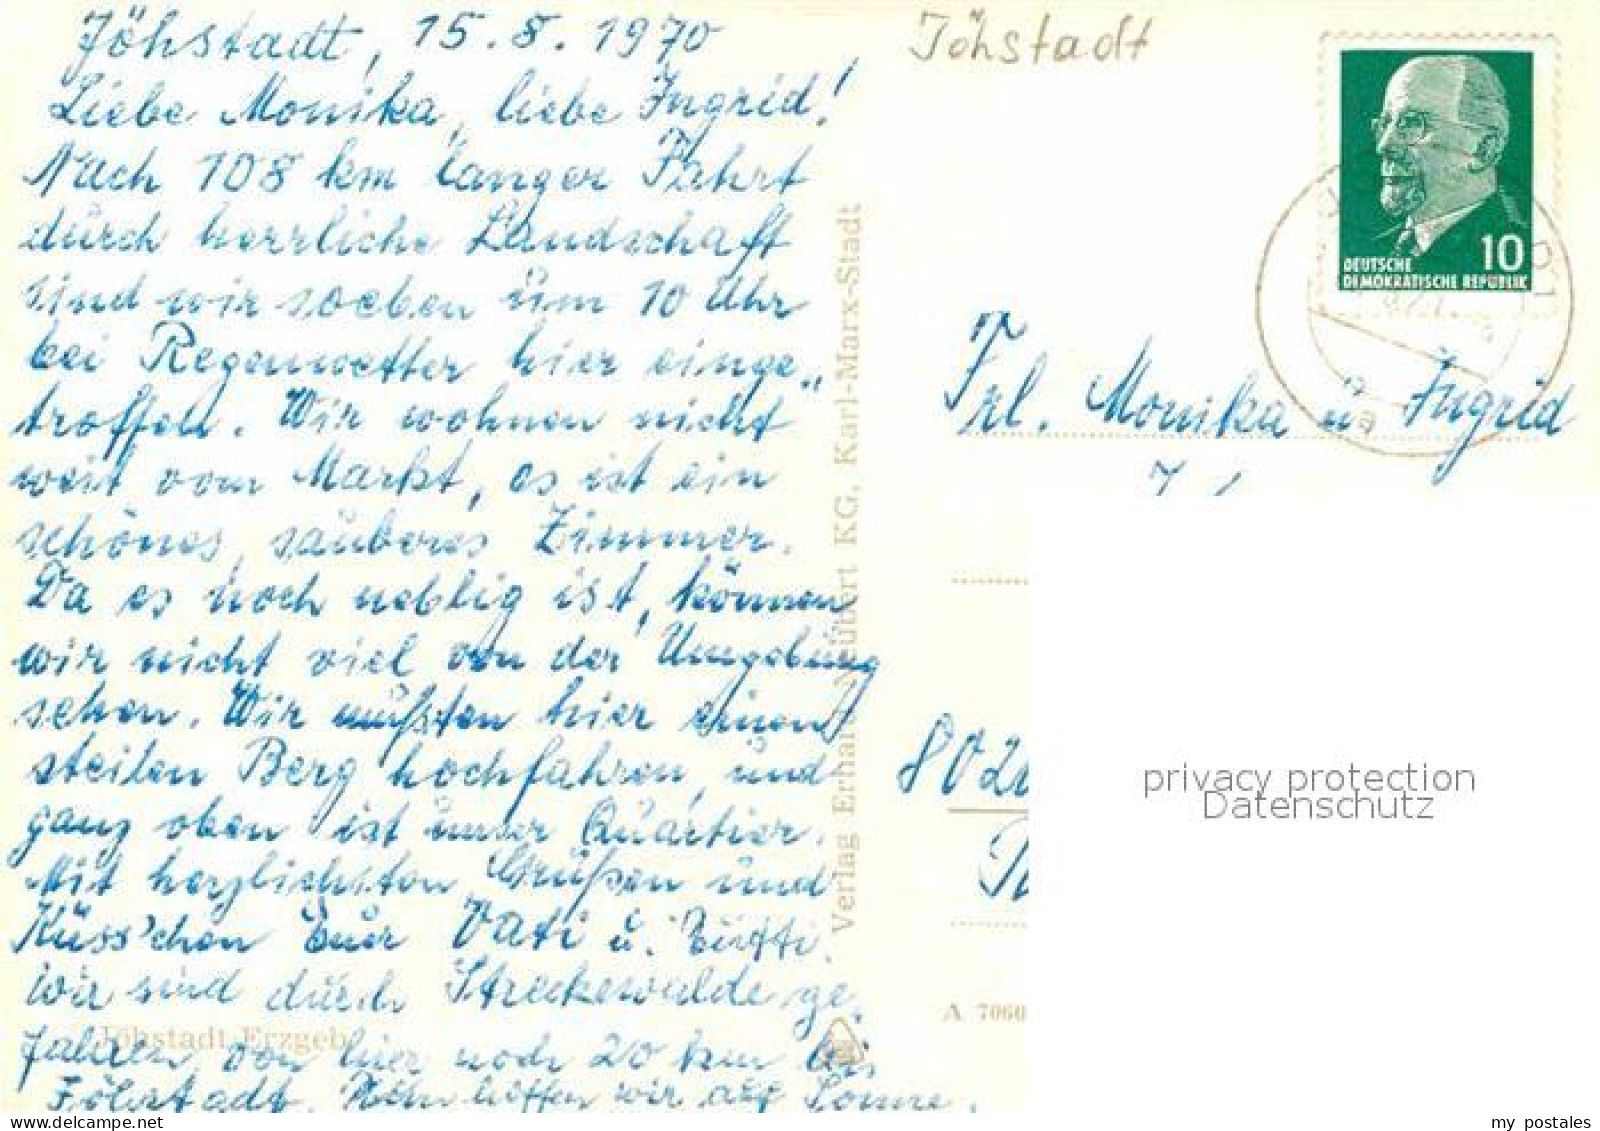 Jöhstadt, 15.8.1970
Liebe Monika, liebe Ingrid!
Nach 108 km langer Fahrt
durch herrliche Landschaft
sind wir soeben um 10 Uhr
bei Regenwetter hier einge„
troffen. Wir wohnen nicht
weit vom Markt, es ist ein
schönes, sauberes Zimmer.
Da es noch neblig ist, können
wir nicht viel von der Umgebung
sehen. Wir mußten hier einen
steilen Berg hochfahren, und
ganz oben ist unser Quartier.
Mit herzlichsten Grüßen und
Küss'chen Euer Vati u.
wir sind durch Streckewalde ge„
fahren, von hier noch 20 km bis
Jöhstadt. Nun hoffen wir auf Sonne.
Jöhstadt Erzgeb.
Verlag Erhard Neubert KG, Karl-Marx-Stadt
Jöhstadt
10
DEUTSCHE
DEMOKRATISCHE REPUBLIK
Frl. Monika u. Ingrid
802
A 7060
privacy protection
Datenschutz
my postales
www.delcampe.net